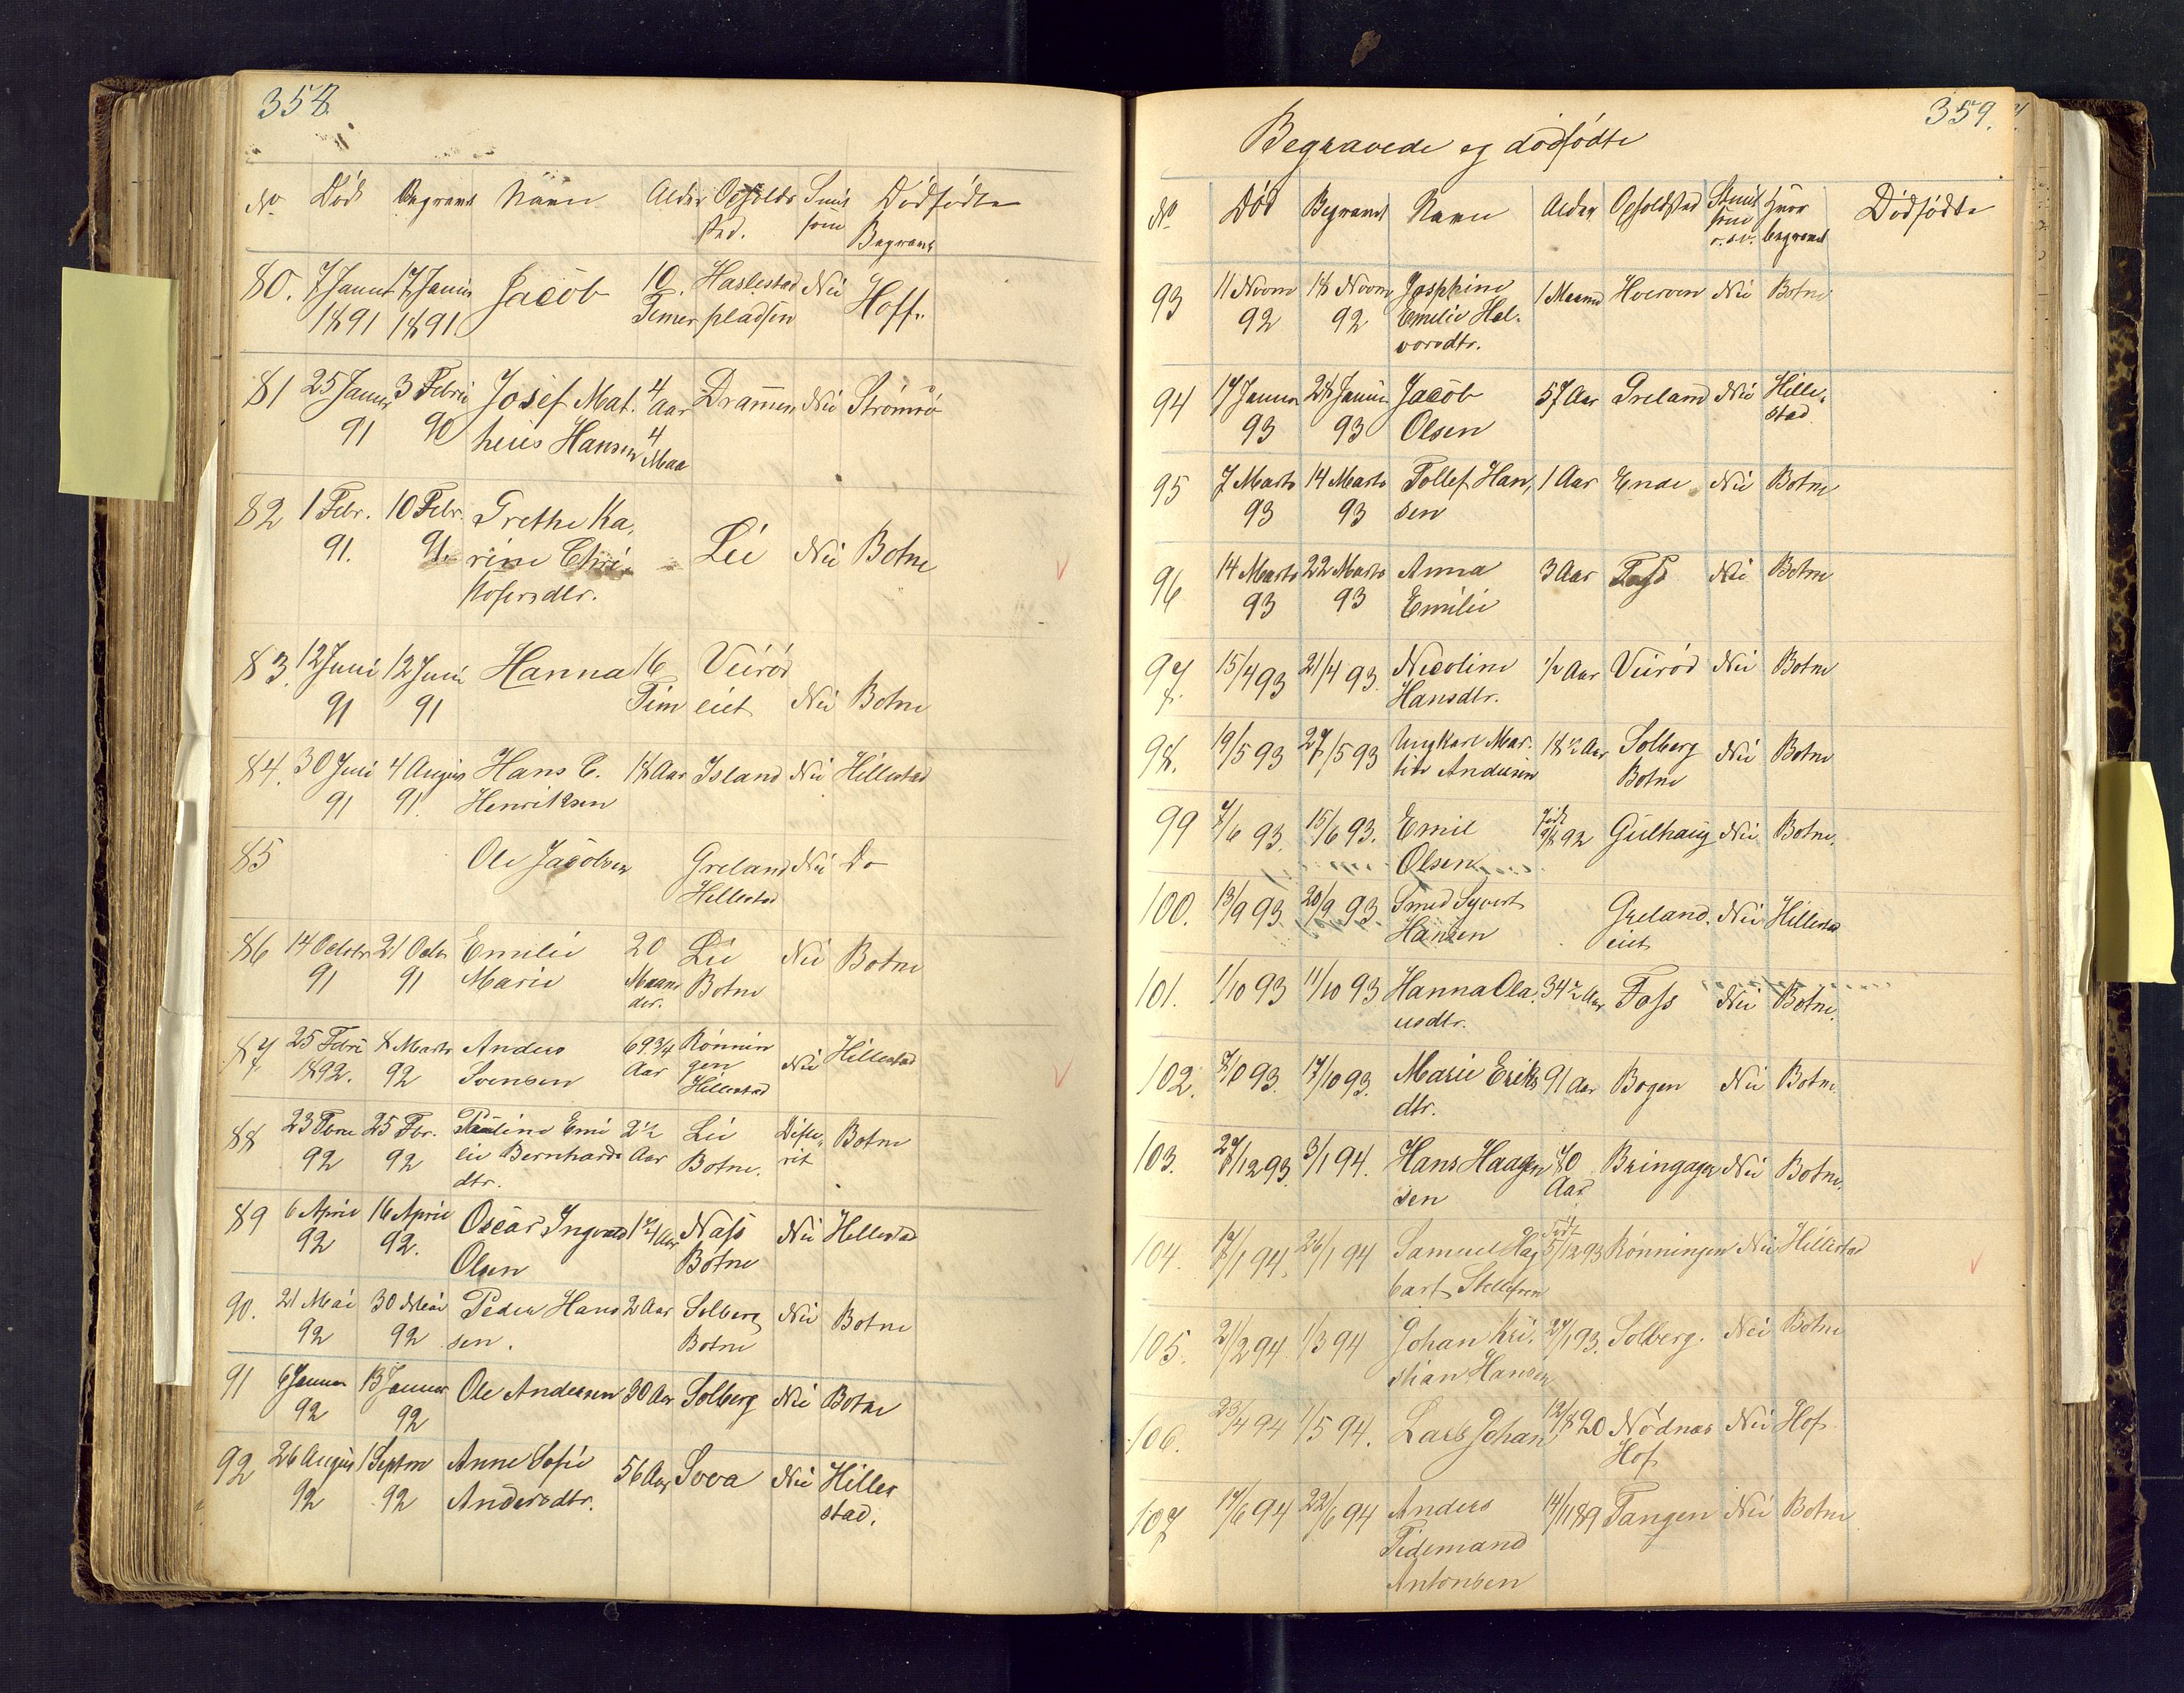 358.
No. Död Begravet Navn Alder Opholds Smit Dödfödte
sted. som Begravet
80. 7 Januar 17 Januar Jacob 10. Haslestad Nei Hoff.
1891 1891 Timer pladsen
81 25 Januar 3 Febru Josef Mat. 4 Drammen Nei Strömsö
91 90 heus Hansen Aar 4 Maa
82 1 Febr. 10 Febr. Grethe Ka, Lie Nei Botne
91. 91. rine Chri,
stofersdtr.
83. 12 Juni 12 Juni Hanna 16 Veiröd Nei Botne
91 91 Tim eiet
84. 30 Juli 4 Augus Hans C. 18 Aar Island Nei Hillestad
91 91. Henriksen
85 Ole Jacobsen Greland Nei Do
Hillestad
86 14 Octobr 21 Octr Emilie 20 Lie Nei Botne
91 91 Marie Maane Botne
der.
87. 25 Febru 8 Marts Anders 69 3/4 Rönnin Nei Hillestad
1892. 92 Svensen Aar gen
Hillestad
88 23 Febru 25 Fbr. Pauline Emi 2 1/2 Lie Difte, Botne
92 92 lie Bernhards Aar Botne. rit
dtr.
89 6 April 16 April Oscar Ingvald 1 1/4 Aar Nass Nei Hillestad
92 92. Olsen Botne
90. 21 Mai 30 Mai Peder Hans 2 Aar Solberg Nei Botne
92 92 sen. Botne
91 6 Januar 13 Januar Ole Andersen 30 Aar Solberg Nei Botne
92 92
92 26 Augus 1 Septm Anne Sofie 56 Aar Sova Nei Hilles
92 92 Andersdtr. stad.
359.
Begravede og dödfödte
No. Död Begravet Navn Alder Opholdsted Smit Hvor Dödfödte
som begravet
o.s.v.
93 11 Novm 18 Novm Josphine 1 Maaned Hvervven Nei Botne
92 92 Emelie Hal.
vorsdtr.
94 17 Januar 28 Januar Jacob 57 Aar Greland Nei Hille,
93 93 Olsen stad
95 7 Marts 14 Marts Tollef Han, 1 Aar Ende Nei Botne
93 93 sen
96 14 Marts 22 Marts Anna 3 Aar Foss Nei Botne
93 93 Emilie
97. 15/4 93 21/4 93. Nicoline 1/2 Aar Veiröd Nei Botne
Hansdtr.
98. 19/5 93 27/5 93 Ungkarl Mar. 18 1/2 Aar Solberg Nei Botne
tin Andersen Botne
99 7/6 93. 15/6 93. Emil Född 92 Gulhaug Nei Botne.
Olsen
100. 13/9 93 20/9 93. Smed Syvert Greland. Nei Hillestad
Hansen eiet
101. 1/10 93 11/10 93 Hanna Ola. 34 1/2 Aar Foss Nei Botne.
usdtr.
102. 7/10 93. 17/10 93. Marie Eriks 91 Aar Bogen Nei Botne.
dtr.
103. 27/12 93. 3/1 94. Hans Haagen 70 Bringager Nei Botne.
sen Aar
104. 17/1 94. 26/1 94 Samuel Hag Född 5/12 93 Rönningen Nei Hillestad
bart Stellefsen
105. 21/2 94 1/3 94 Johan Kri. 27/1 93. Solberg. Nei Botne
stian Hansen
106. 23/4 94 1/5 94. Lars Johan 12/8 20 Nödnes Nei Hof.
Hof.
107 14/6 94 22/6 94 Anders 14/11 89 Tangen Nei Botne
Tidemand
Antonsen